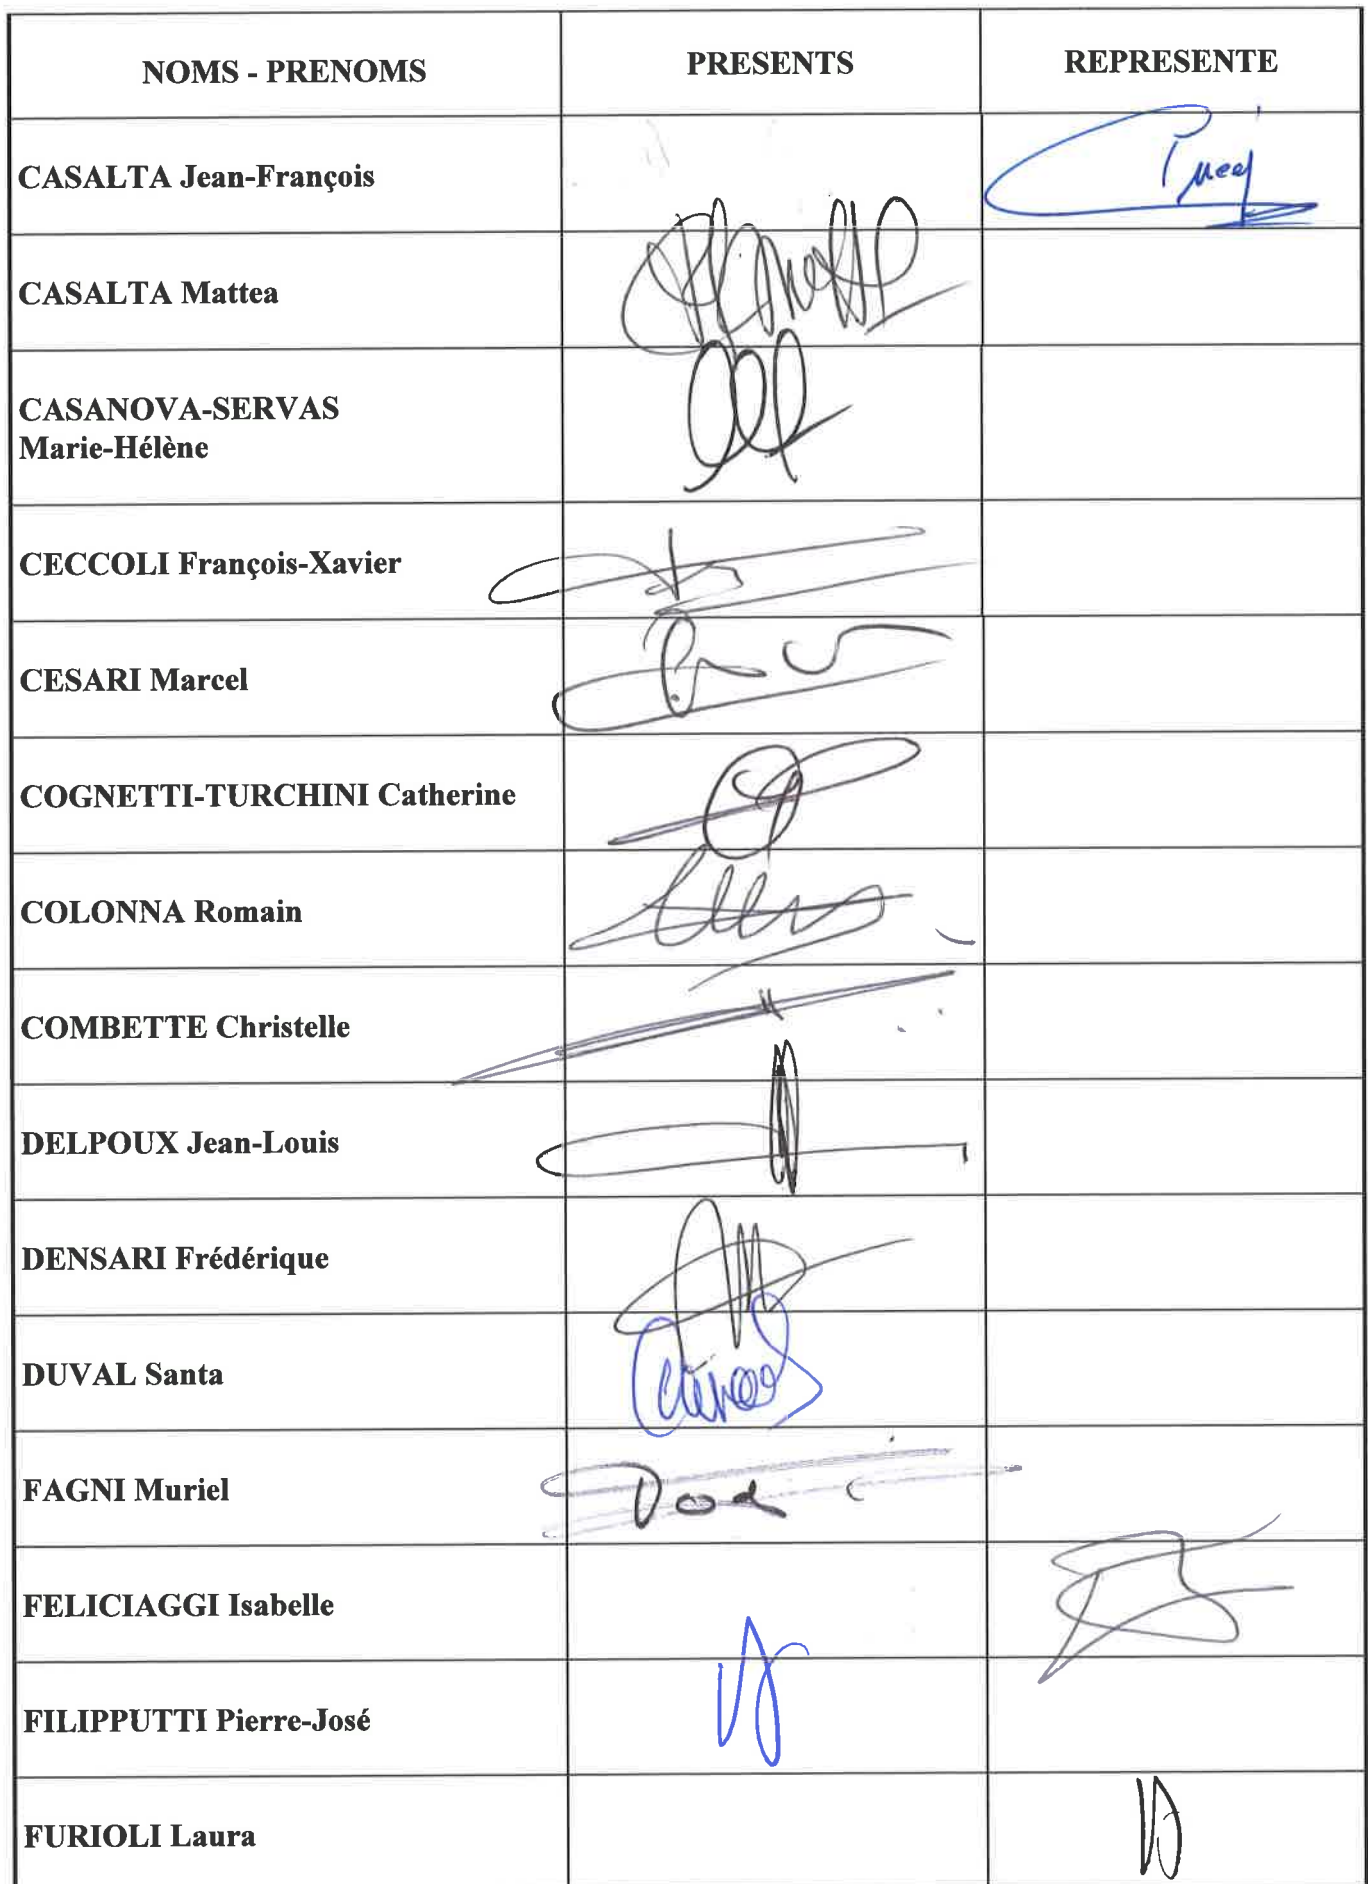 NOMS - PRENOMS
PRESENTS
REPRESENTE
CASALTA Jean-François
CASALTA Mattea
CASANOVA-SERVAS
Marie-Hélène
CECCOLI François-Xavier
CESARI Marcel
COGNETTI-TURCHINI Catherine
COLONNA Romain
COMBETTE Christelle
DELPOUX Jean-Louis
DENSARI Frédérique
DUVAL Santa
FAGNI Muriel
FELICIAGGI Isabelle
FILIPPUTTI Pierre-José
FURIOLI Laura